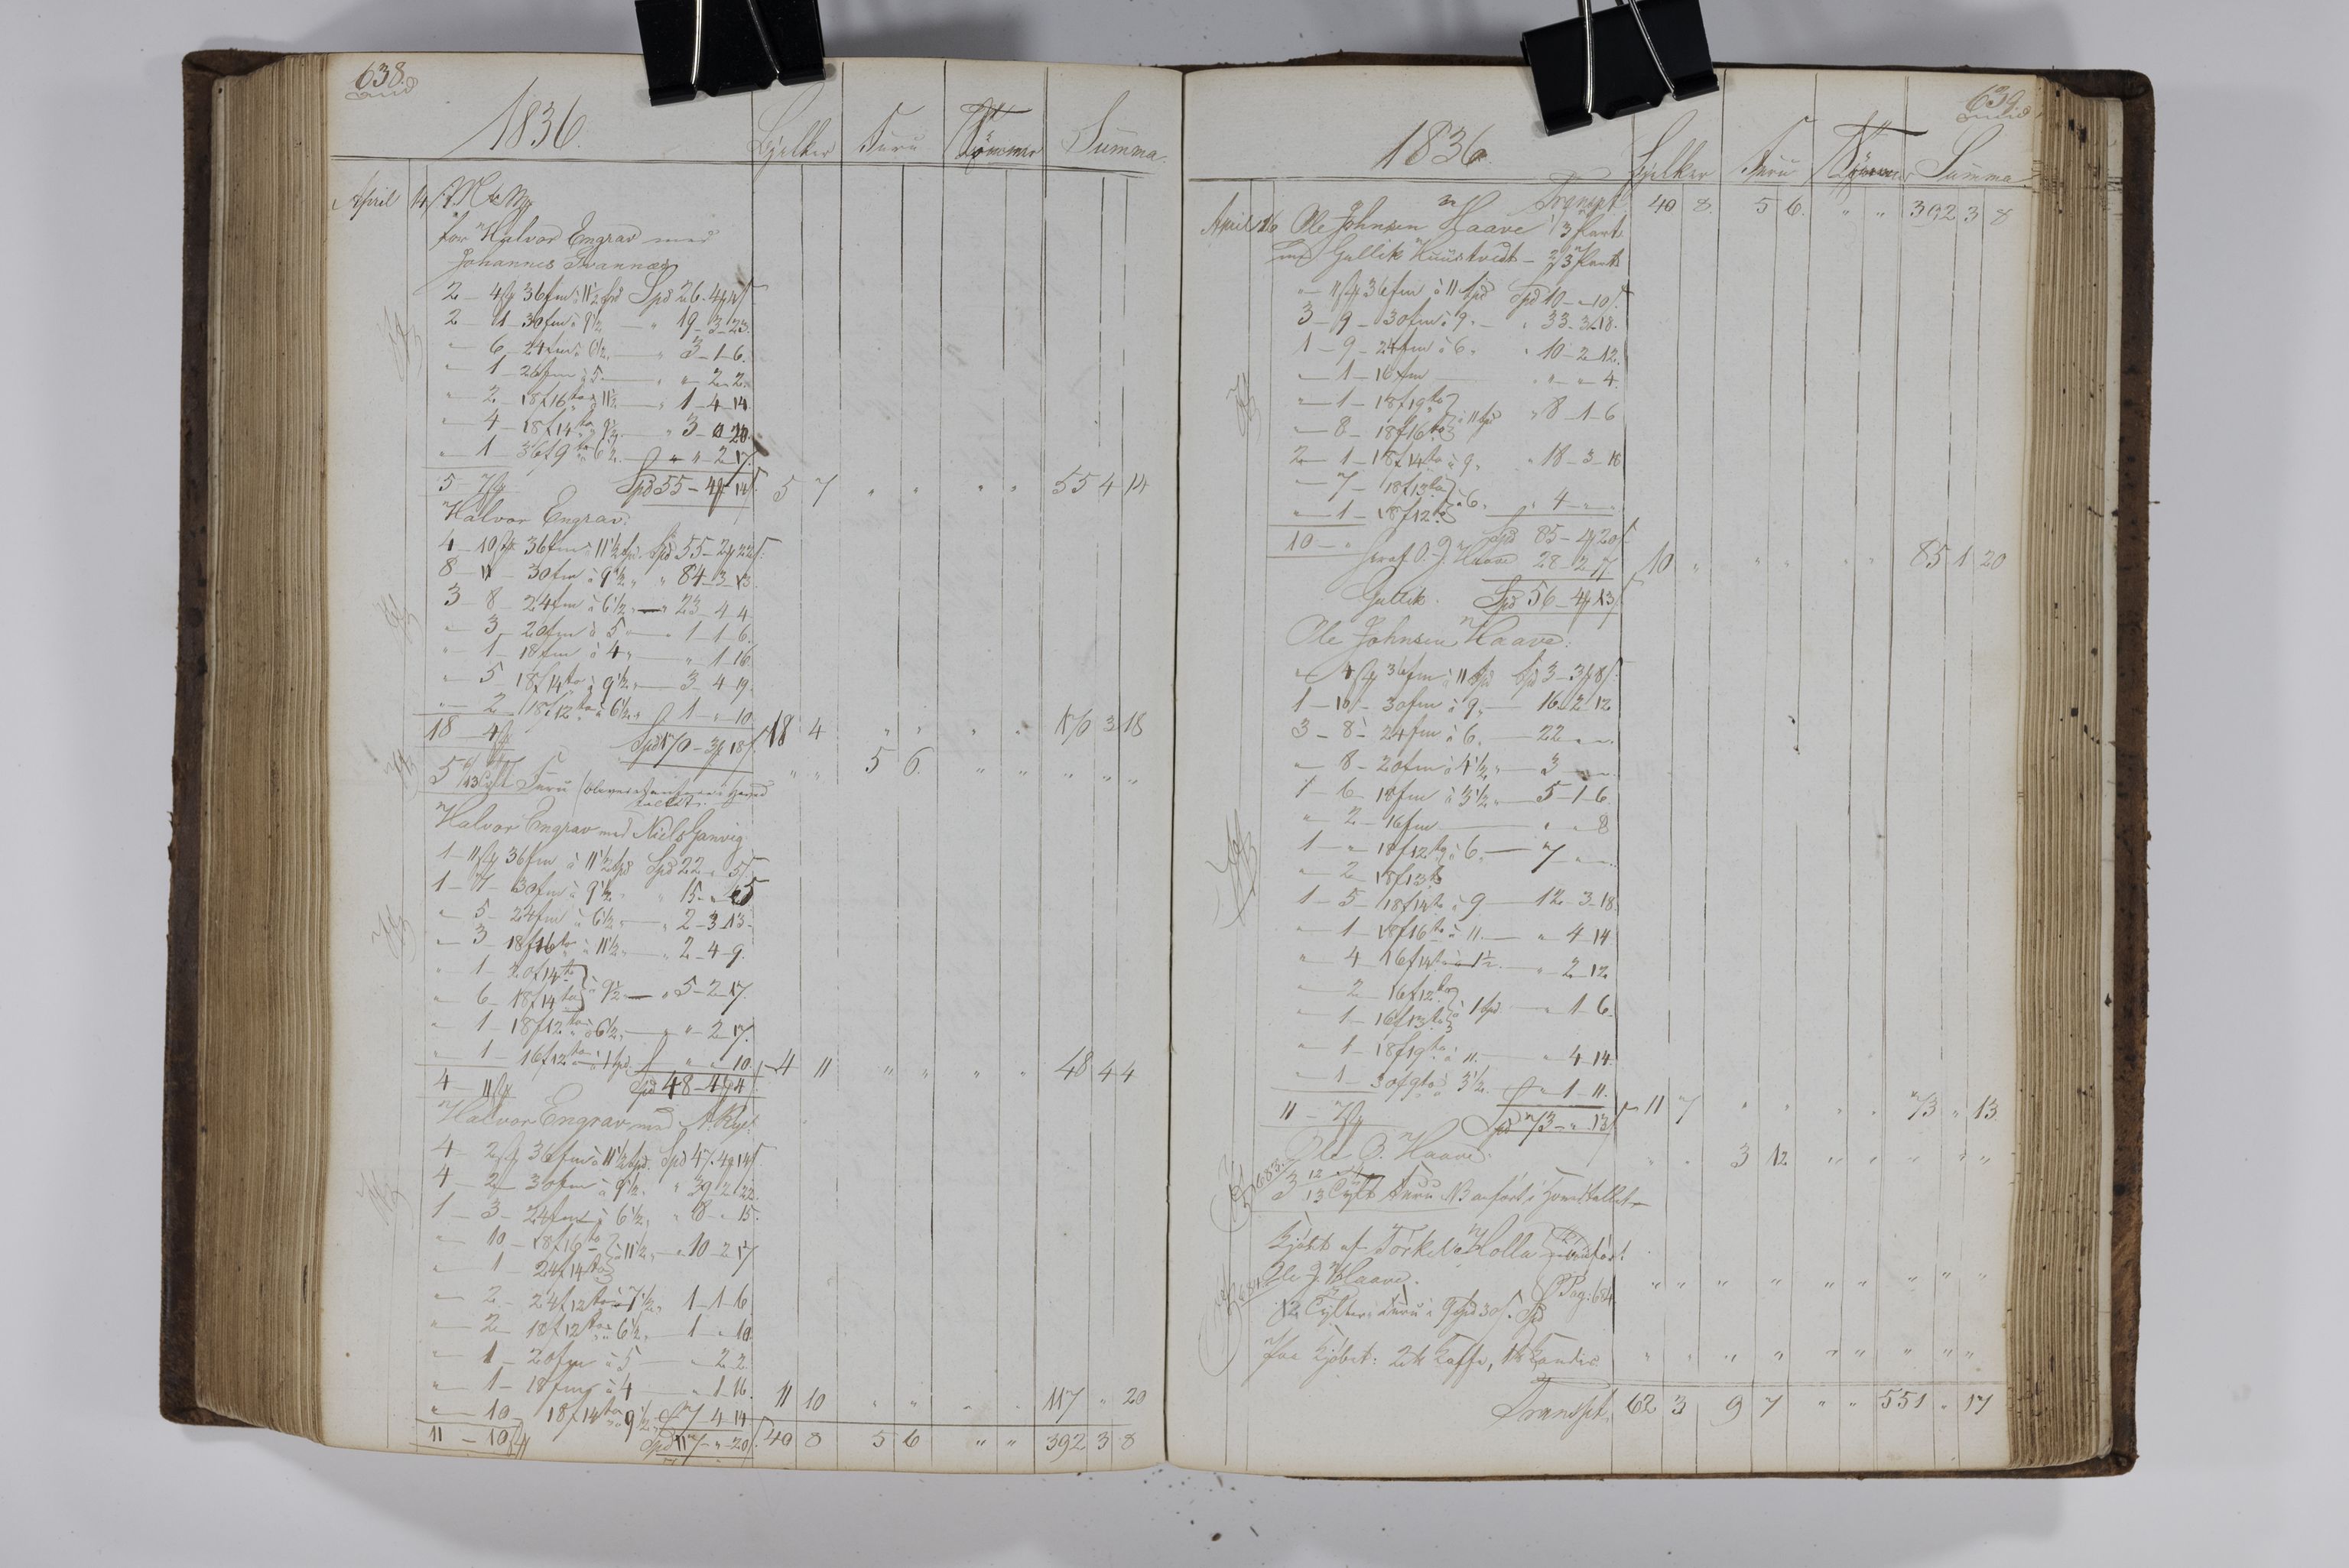 638.
1836.
Bjelker Furu Tømmer Summa.
April 14
for Halvor Engrav med
Johannes
2 - 4 36fm à 11½ Spd Spd 26 - 4 - 4
2 - 1 - 30fm à 9½ - " 19 - 3 - 23.
" - 6 - 24fm à 6½ - " 3 - 1 - 6.
" - 1 - 20fm à 5 - " " - 2 - 2.
" - 2 - 18f 16to à 11½ - " 1 - 4 - 14
" - 4 - 18f 14to à 9½ - " 3 - 0 - 20
" - 1 - 36f 9to à 6½ - " " - 2 - 17.
5 - 7 Spd 55 - 4 - 14 5 7 " " " " 55 4 14
Halvor Engrav.
4 - 10 36fm à 11½ Spd. Spd 55 - 2 - 22
8 - 11 - 30fm à 9½ " " 84 - 3 - 13.
3 - 8 - 24fm à 6½ - " 23 - 4 - 4
" - 3 - 20fm à 5 - " 1 - 1 - 6.
" - 1 - 18fm à 4 " - " 1 - 16
" - 5 - 18f 14to à 9½ - 3 - 4 - 19.
" - 2 - 18f 12to à 6½ 1 - " - 10
18 - 4 Spd 170 - 3 - 18 18 4 " " " " 170 3 18
5 6/13 Tylt Furu " " 5 6. " " " " "
Halvor Engrav med Niels Ganvig
1 - 11 36fm à 11½ Spd Spd 22 - " - 5
1 - 7 - 30fm à 9½ " 15 - " - 15
" - 5 - 24fm à 6½ - " 2 - 3 - 13.
" - 3 - 18f 16to à 11½ - " 2 - 4 - 9.
" - 1 - 20f 14to
" - 6 - 18f 14to à 9½ - " 5 - 2 - 17.
" - 1 - 18f 12to à 6½ - " " - 2 - 17.
" - 1 - 16f 12to à 1 Spd. " " 10.
4 - 11 Spd 48 - 4 - 4 4 11 " " " " 48 4 4
Halvor Engrav med
4 - 2 36fm à 11½ Spd. Spd 47 - 4 - 14
4 - 2 - 30fm à 9½ " 39 - 2 - 22.
1 - 3 - 24fm à 6½ " 8 - " - 15.
" - 10 - 18f 16to à 11½ " 10 - 2 - 17
" - 1 - 24f 14to
" - 2 - 24f 12to à 7½ 1 - 1 - 6
" - 2 - 18f 12to à 6½ - 1 - " - 10
" - 1 - 20fm à 5 - " 2 - 2
" - 1 - 18fm à 4 - " 1 - 16.
" - 10 - 18f 14to à 9½ 7 - 4 - 14 11 10 " " " " 117 " 20
11 - 10 Spd 117 - " - 20 40 8 5 6 " " 392 3 8
639.
1836.
Bjelker Furu Tømmer Summa
Transpt. 40 8. 5 6. " " 392 3 8
April 16 Ole Johnsen Haave 1/3 Part
med Gullik Kuustvedt - 2/3 Part
" - 11 36fm à 11 Spd Spd 10 - " - 10
3 - 9 - 30fm à 9. - " 33 - 3 - 18.
1 - 9 - 24fm à 6. " 10 - 2 - 12.
" - 1 - 16fm - " " - " - 4.
" - 1 - 18f 19to
" - 8 - 18f 16to à 11 Spd " 8 - 1 - 6
2 - 1 - 18f 14to à 9. " 18 - 3 - 18
" - 7 - 18f 13to
" - 1 - 18f 12to à 6. " 4 - " - "
10 - " Spd 85 - 1 - 20 10 " " " " " 85 1 20
heraf O. J. Haave 28 - 2 - 7
Gullik. Spd 56 - 4 - 13
Ole Johnsen Haave:
" - 4 36fm à 11 Spd Spd 3 - 3 - 8
1 - 10 - 30fm à 9. - 16 - 2 - 12
3 - 8 - 24fm à 6. - 22 - " - "
" - 8 - 20fm à 4½ - 3 - " - "
1 - 6 - 18fm à 3½ - 5 - 1 - 6.
" - 2 - 16fm - " " 8
1 - " - 18f 12to à 6. - 7 - " - "
" - 2 - 18f 13to
1 - 5 - 18f 14to à 9 - 12 - 3 - 18.
" - 1 - 18f 16to à 11. - " 4 - 14
" - 4 - 16f 14to à 1½ - " 2 - 12
" - 2 - 16f 12to
" - 1 - 16f 13to à 1 Spd - " 1 - 6.
" - 1 - 18f 19to à 11. - " 4 - 14.
" - 1 - 30f 9to à 3½ " 1 - 11.
11 - 7 Spd 73 - " - 13 11 7 " " " " 73 " 13
Ole J. Haave. " " 3 12 " " " " "
683. 3 12/13 Tylt Furu NB anført i
Kjøbt af Torkel Holla
684 Ole J. Haave. Pag: 684. " " " " " " " " "
12 Tylter Furu à 9 Spd
Paa Kjøbet: 2 ℔ Kaffe, 1 ℔ Kandis " " " " " " " " "
Transpt. 62 3 9 7 " " 551 " 17